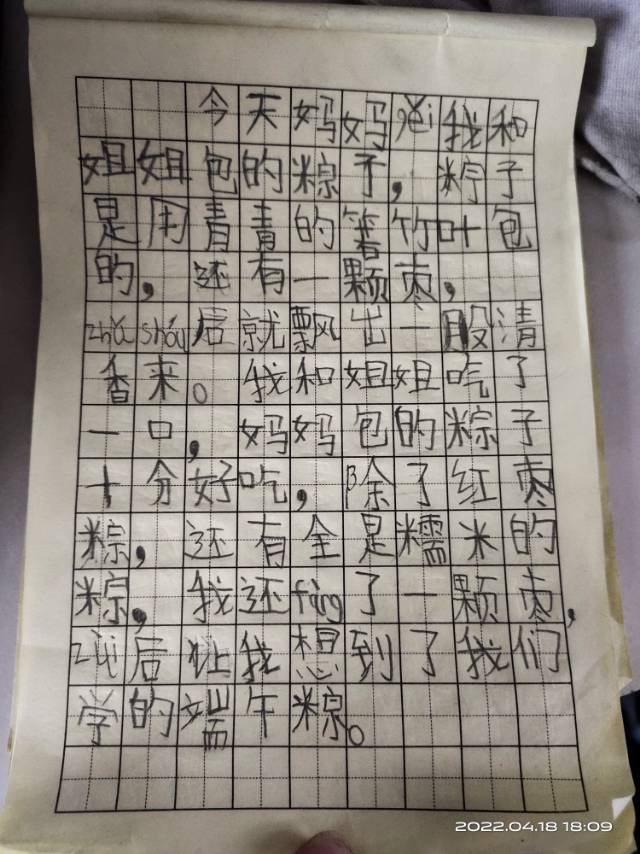 今天妈妈gěi我和
姐姐包的粽子，粽子
是用青青的箬竹叶包
的，还有一颗枣，
zhǔ shóu后就飘出一股清
香来。我和姐姐吃了
一口，妈妈包的粽子
十分好吃，除了红枣
粽，还有全是糯米的
粽，我还fàng了一颗枣，
zuì后让我想到了我们
学的端午粽。
2022.04.18 18:09